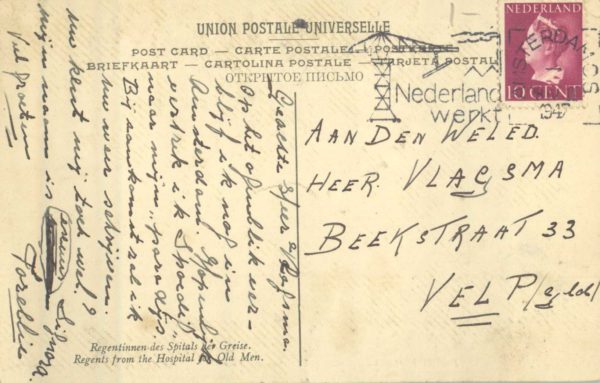 UNION POSTALE UNIVERSELLE
POST CARD — CARTE POSTALE — POSTKARTE
BRIEFKAART — CARTOLINA POSTALE — TARJETA POSTAL
ОТКРЫТОЕ ПИСЬМО
NEDERLAND
10 CENT
AMSTERDAM
1947
Nederland
werkt
AAN DEN WELED.
HEER. VLAGSMA
BEEKSTRAAT 33
VELP/gld/
Geachte Heer Vlagsma.
Op het ogenblik ver-
blijf ik nog in
Amsterdam.
vertrek ik Spoedig
naar mijn "paradijs"
Bij aankomst zal ik
Uw weer schrijven.
Uw kent mij toch wel?
Mijn naam is Signora
Vel groeten Torellie
Regentinnen des Spitals der Greise.
Regents from the Hospital for Old Men.